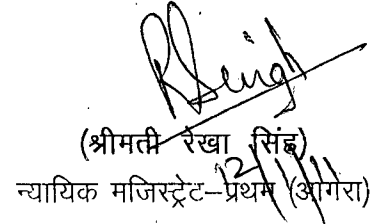 RSingh
(श्रीमती रेखा सिंह)
12/1/11
न्यायिक मजिस्ट्रेट–प्रथम (आगरा)